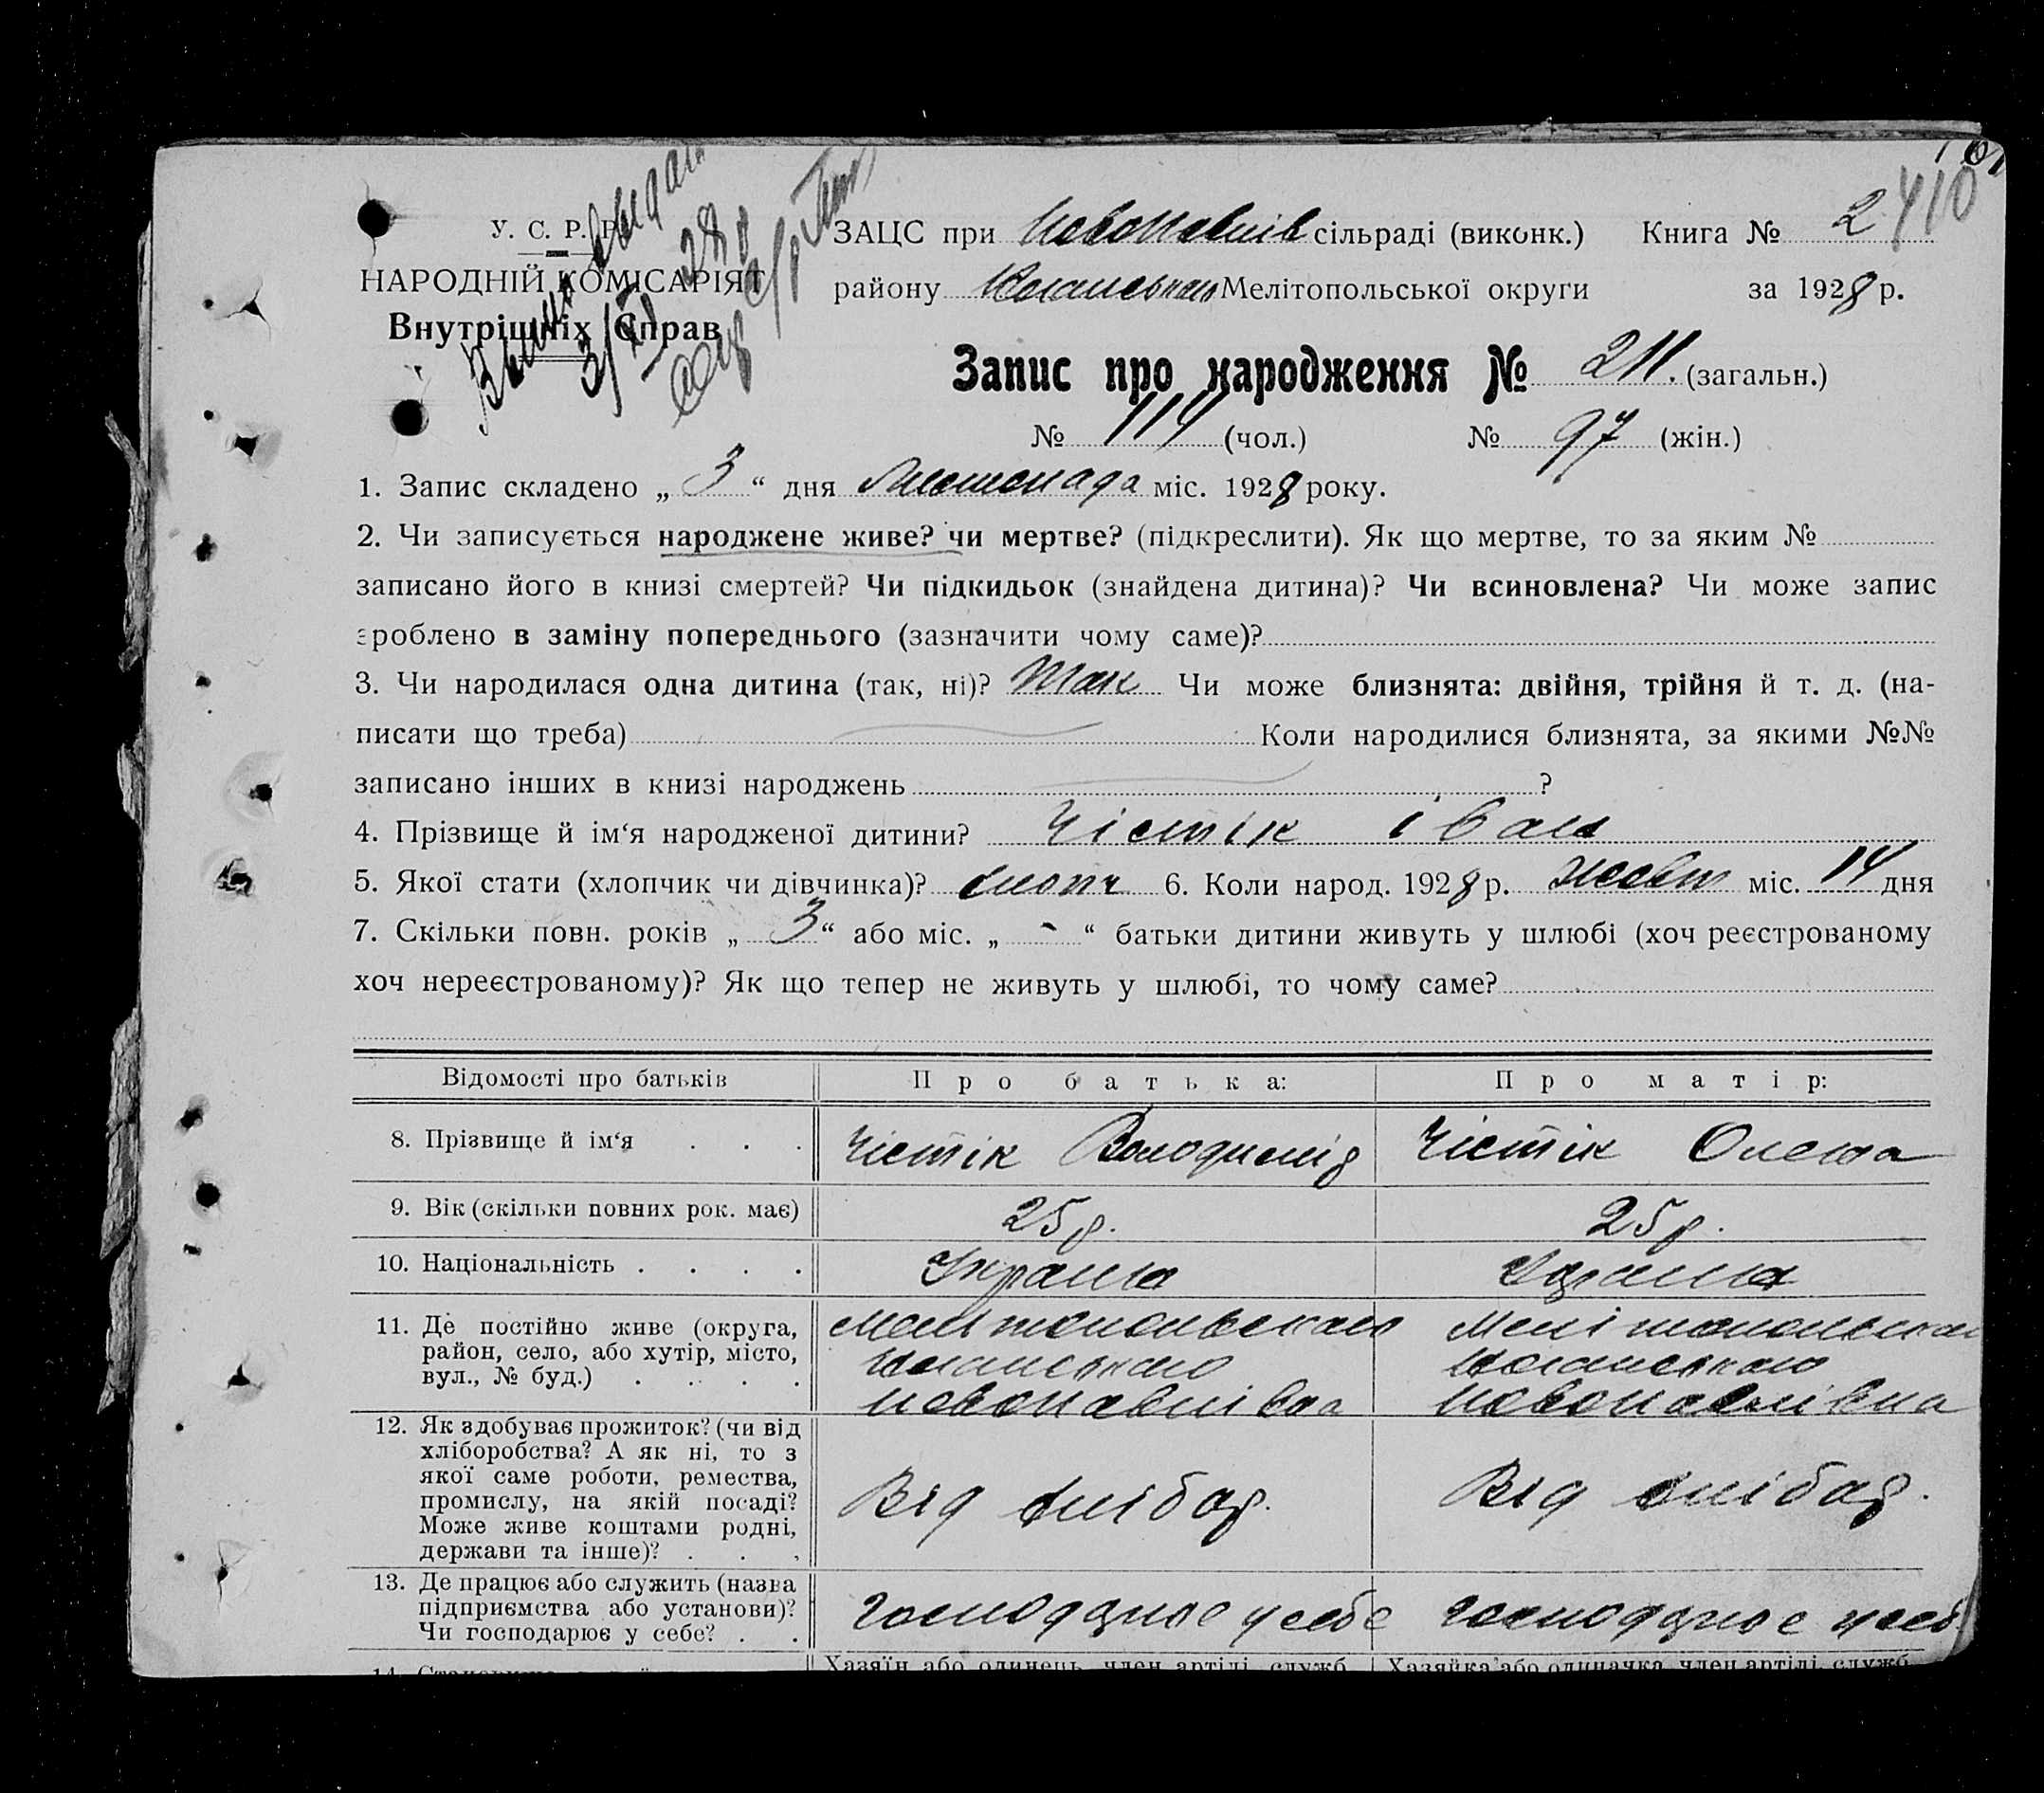 У. С. Р. Р.
НАРОДНІЙ КОМІСАРІЯТ
Внутрішніх Справ
3/XI 28 р
ЗАЦС при Новопавлів сільраді (виконк.) Книга № 2 410
району Мелітопольської округи за 1928 р.
Запис про народження № 211. (загальн.)
№ 114 (чол.) № 97 (жін.)
1. Запис складено „ 3 “ дня Листопада міс. 1928 року.
2. Чи записується народжене живе? чи мертве? (підкреслити). Як що мертве, то за яким №
записано його в книзі смертей? Чи підкидьок (знайдена дитина)? Чи всиновлена? Чи може запис
зроблено в заміну попереднього (зазначити чому саме)?
3. Чи народилася одна дитина (так, ні)? Так Чи може близнята: двійня, трійня й т. д. (на-
писати що треба) Коли народилися близнята, за якими №№
записано інших в книзі народжень ?
4. Прізвище й ім‘я народженої дитини? Чістік Іван
5. Якої стати (хлопчик чи дівчинка)? хлопч 6. Коли народ. 1928 р. жовт міс. 14 дня
7. Скільки повн. років „ 3 “ або міс. „ - “ батьки дитини живуть у шлюбі (хоч реєстрованому
хоч нереєстрованому)? Як що тепер не живуть у шлюбі, то чому саме?
Відомості про батьків Про батька: Про матір:
8. Прізвище й ім‘я . . . Чістік Володимір Чістік Олена
9. Вік (скільки повних рок. має) 25 р. 25 р.
10. Національність . . . . Україна Україна
11. Де постійно живе (округа,
район, село, або хутір, місто,
вул., № буд.) . . . .
Новопавлівка Новопавлівка
12. Як здобуває прожиток? (чи від
хліборобства? А як ні, то з
якої саме роботи, ремества,
промислу, на якій посаді?
Може живе коштами родні,
держави та інше)? . . .
Від хлібор. Від хлібор.
13. Де працює або служить (назва
підприємства або установи)?
Чи господарює у себе? . .
господарює у себе господарює у себ
Хазяїн або одинець, член артілі, служб. Хазяйка або одиначка, член артілі, служб.